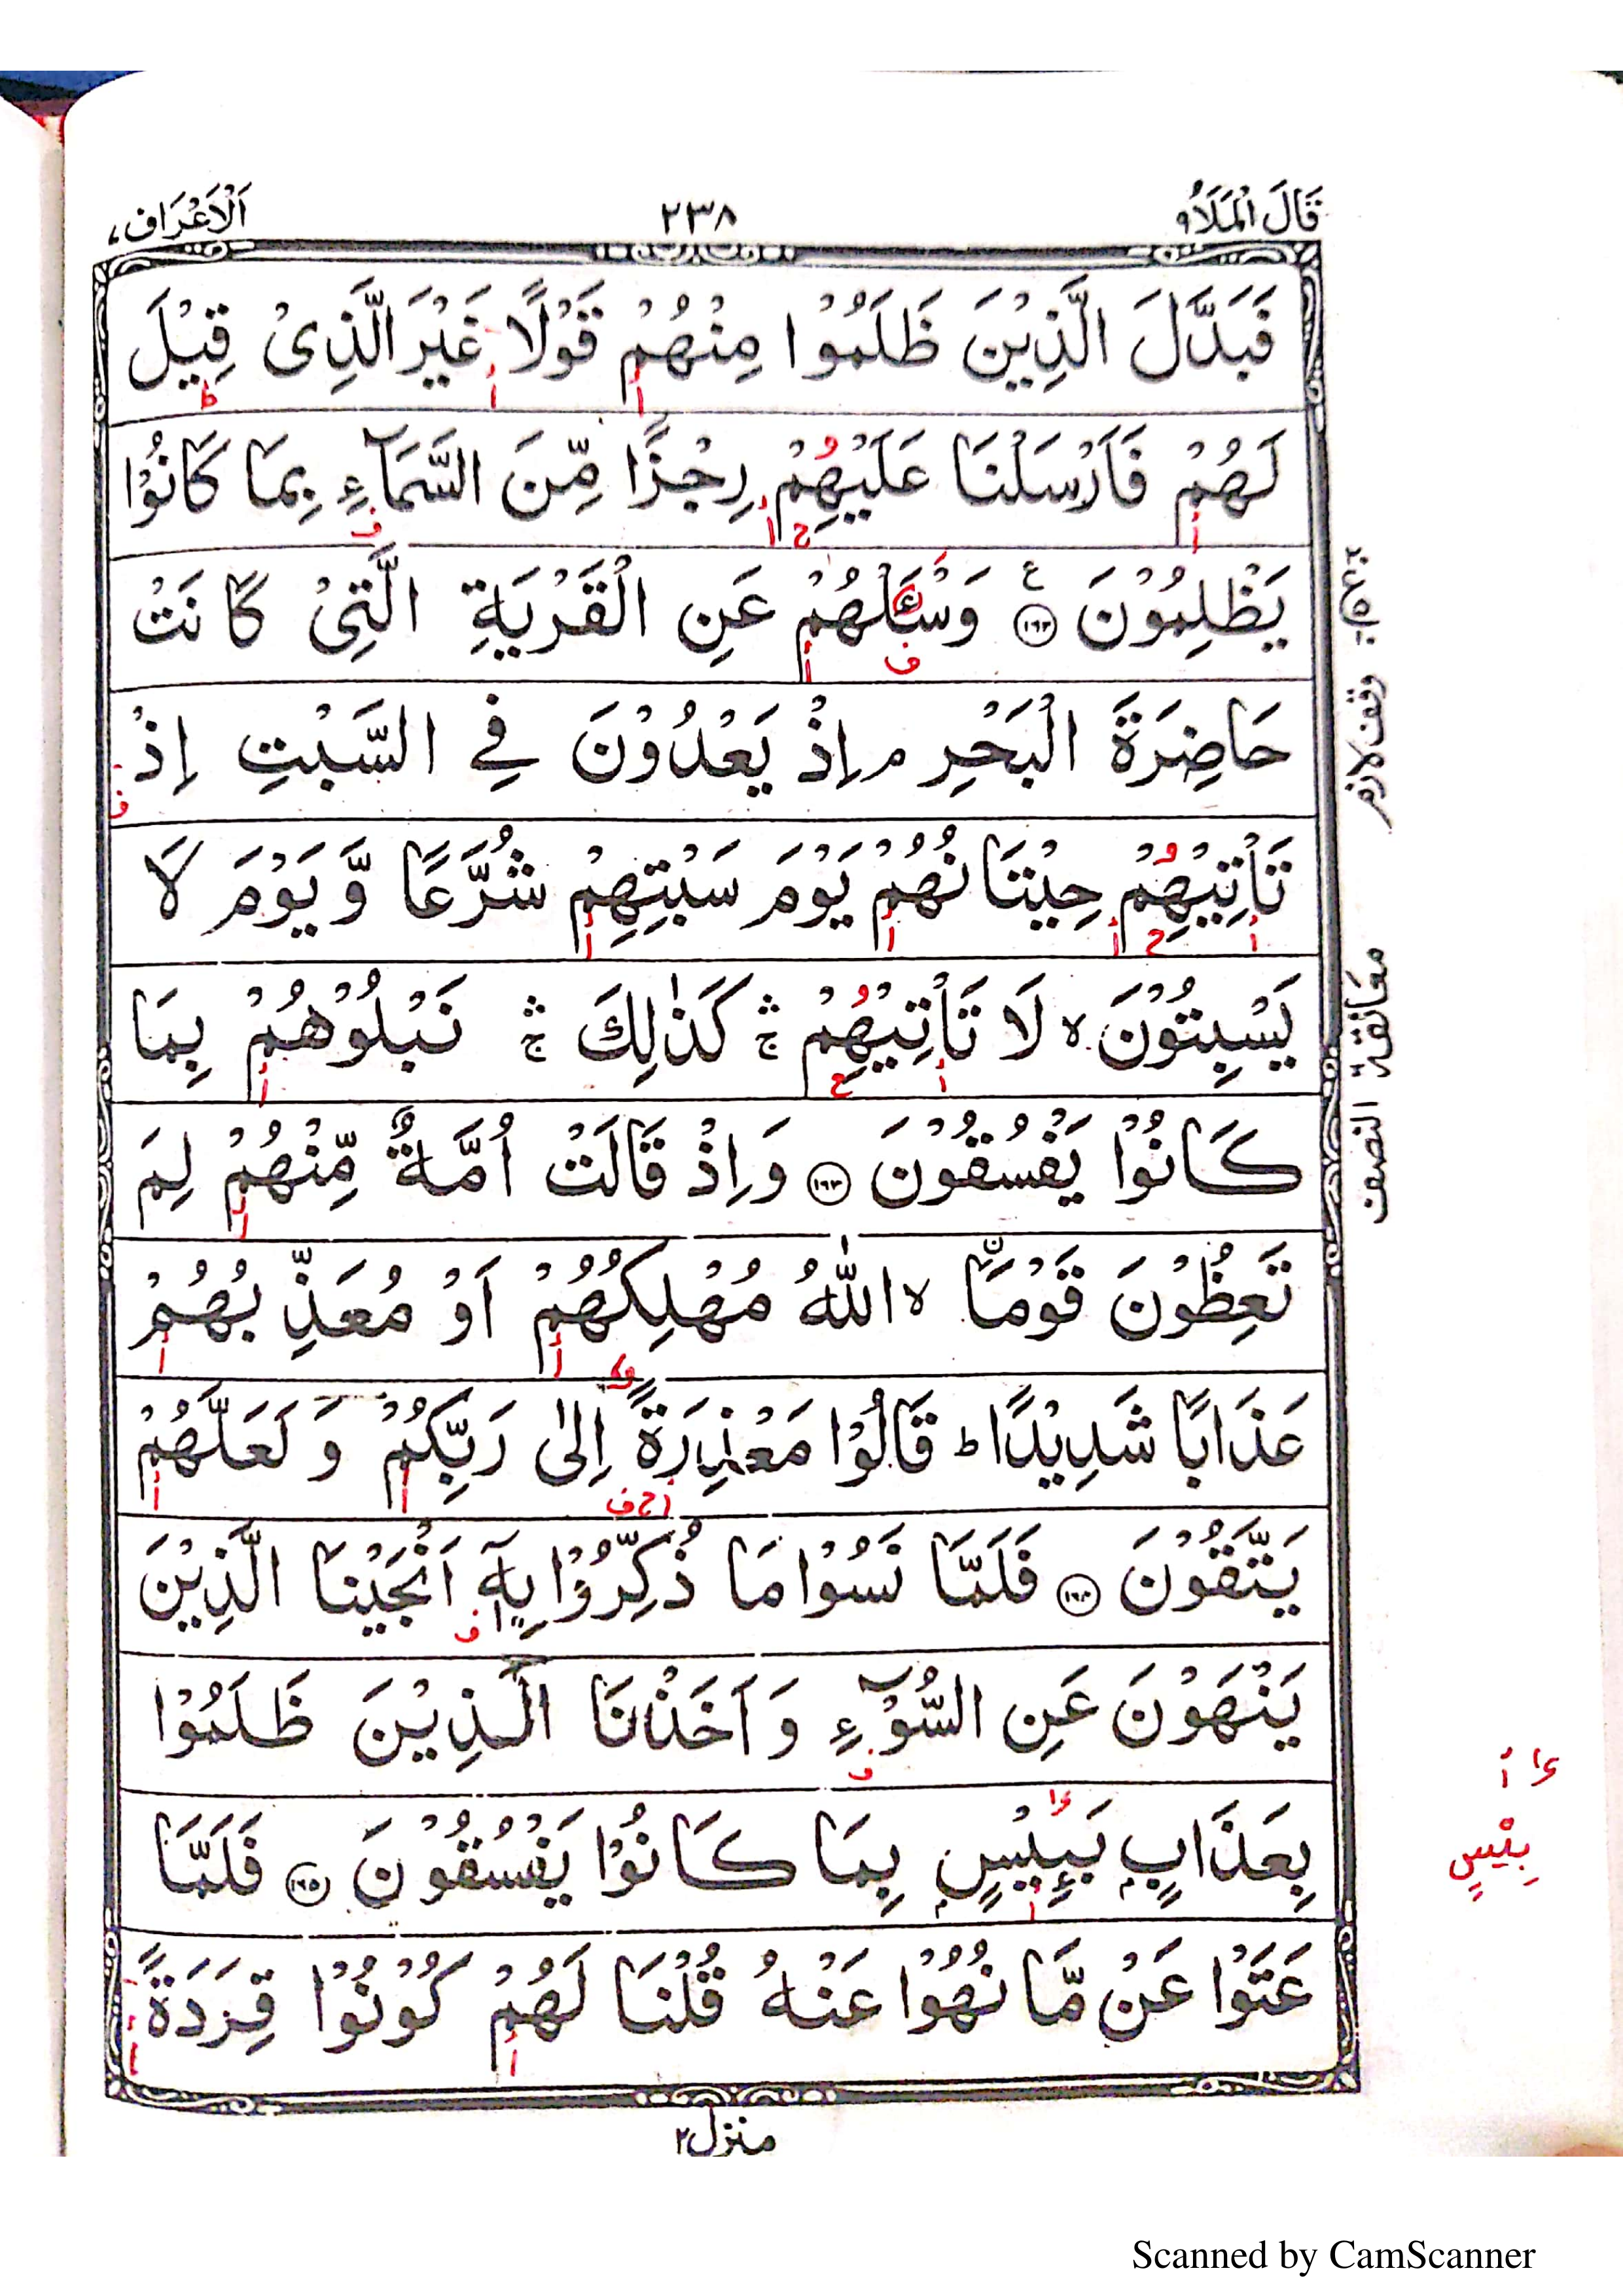 قَالَ الْمَلَاُ ۹
۲۳۸
اَلْاَعْرَاف ۷
فَبَدَّلَ الَّذِیْنَ ظَلَمُوْا مِنْهُمْ قَوْلًا غَیْرَ الَّذِیْ قِیْلَ
لَهُمْ فَاَرْسَلْنَا عَلَیْهِمْ رِجْزًا مِّنَ السَّمَآءِ بِمَا كَانُوْا
یَظْلِمُوْنَ ۱۶۲ ع وَسْـَٔلْهُمْ عَنِ الْقَرْیَةِ الَّتِیْ كَانَتْ
حَاضِرَةَ الْبَحْرِ م اِذْ یَعْدُوْنَ فِی السَّبْتِ اِذْ
تَاْتِیْهِمْ حِیْتَانُهُمْ یَوْمَ سَبْتِهِمْ شُرَّعًا وَّ یَوْمَ لَا
یَسْبِتُوْنَ ۙ لَا تَاْتِیْهِمْ ۛۚ كَذٰلِكَ ۛۚ نَبْلُوْهُمْ بِمَا
كَانُوْا یَفْسُقُوْنَ ۱۶۳ وَ اِذْ قَالَتْ اُمَّةٌ مِّنْهُمْ لِمَ
تَعِظُوْنَ قَوْمَاۨ ۙ اللّٰهُ مُهْلِكُهُمْ اَوْ مُعَذِّبُهُمْ
عَذَابًا شَدِیْدًا ؕ قَالُوْا مَعْذِرَةً اِلٰی رَبِّكُمْ وَ لَعَلَّهُمْ
یَتَّقُوْنَ ۱۶۴ فَلَمَّا نَسُوْا مَا ذُكِّرُوْا بِهٖۤ اَنْجَیْنَا الَّذِیْنَ
یَنْهَوْنَ عَنِ السُّوْٓءِ وَ اَخَذْنَا الَّذِیْنَ ظَلَمُوْا
بِعَذَابٍۭ بَىِٕیْسٍۭ بِمَا كَانُوْا یَفْسُقُوْنَ ۱۶۵ فَلَمَّا
عَتَوْا عَنْ مَّا نُهُوْا عَنْهُ قُلْنَا لَهُمْ كُوْنُوْا قِرَدَةً
وقف لازم
معانقة
النصف
بِیْسٍ
منزل ۲
Scanned by CamScanner